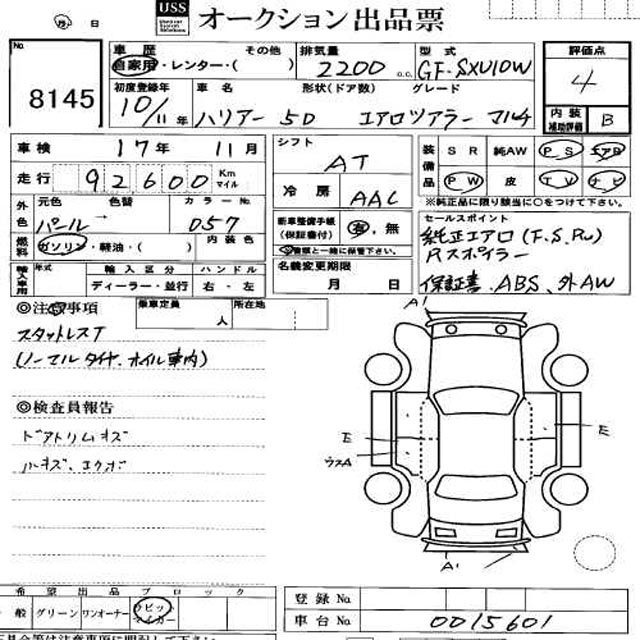 USS オークション出品票
日
No
8145
車歴 その他
自家用・レンター・( )
排気量
2200 c.c.
型式
GF-SXU10W
評価点
4
初度登録年
10/11年
車名 形状(ドア数) グレード
ハリアー 5D エアロツアラー マルチ
内装
補助評価
B
車検 17年 11月
走行 92,600 Km
マイル
外色
元色 色替 カラーNo.
パール→ 057
燃料
ガソリン・軽油・( )
内装色
輸入車用
年式 輸入区分 ハンドル
ディーラー・並行 右・左
シフト
AT
冷房
AAC
新車整備手帳
(保証書付)
有,無
書類と一緒に保管下さい。
名義変更期限
月 日
装備品
SR 純AW PS エアB
PW 皮 TV ナビ
※純正品に限り該当に○をつけて下さい。
セールスポイント
純正エアロ(F.S.Rw)
Rスポイラー
保証書.ABS、外AW
◎注意事項
乗車定員 人
所在地
スタットレスT
(ノーマルタイヤ.ホイル車内)
◎検査員報告
ドアトリムキズ
ルーキズ、エクボ
A1
E
E
ウスA
A1
希望出品ブロック
一般 グリーン ワンオーナー ラビットマイカー
登録No
車台No 0015601